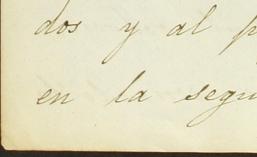 dos y al p
en la segu